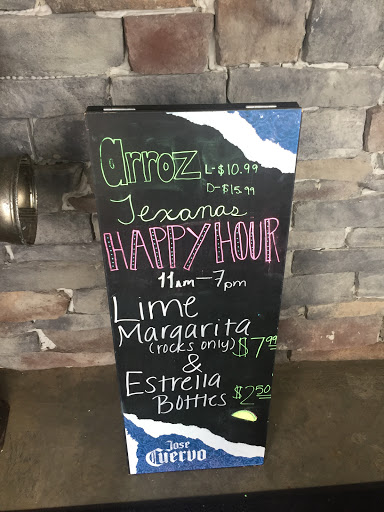 arroz L-$10.99
D-$15.99
Texanas
HAPPY HOUR
11am-7pm
Lime
Margarita
(rocks only) $7.99
&
Estrella
Bottles $2.50
Jose
Cuervo